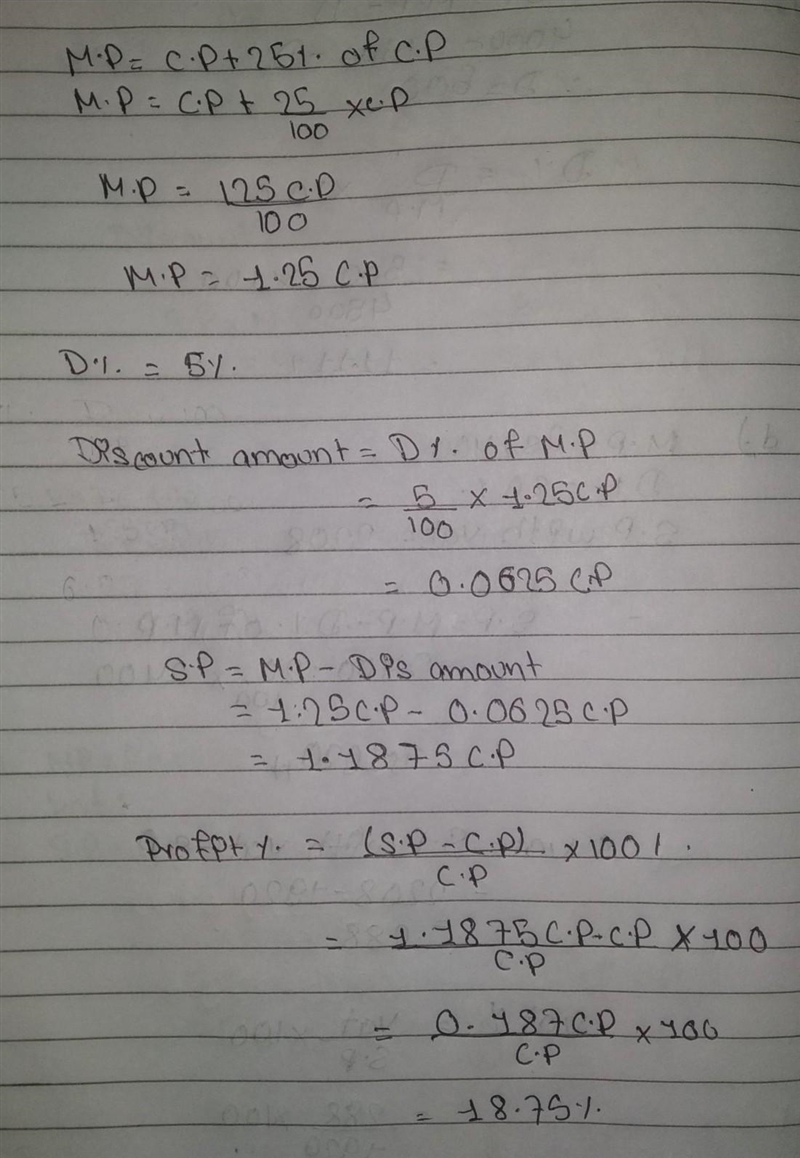 M.P = C.P + 25%. of C.P
M.P = C.P + 25/100 x C.P
M.P = 125 C.P/100
M.P = 1.25 C.P
D%. = 5%.
Discount amount = D%. of M.P
= 5/100 x 1.25 C.P
= 0.0625 C.P
S.P = M.P - Dis amount
= 1.25 C.P - 0.0625 C.P
= 1.1875 C.P
Profit %. = (S.P - C.P)/C.P x 100%.
= 1.1875 C.P - C.P/C.P x 100
= 0.187 C.P/C.P x 100
= 18.75%.